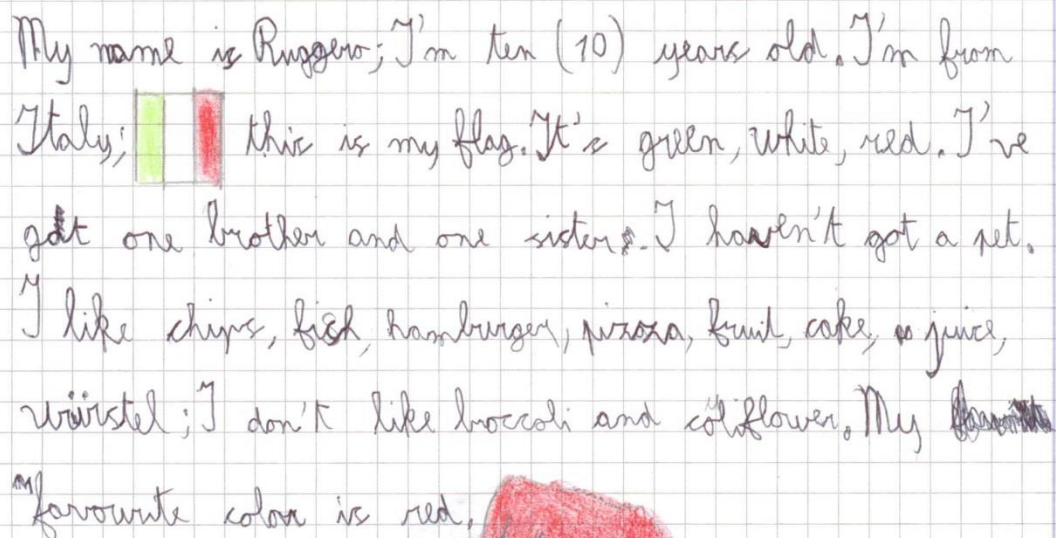 My name is Ruggero; I'm ten (10) years old. I'm from
Italy; this is my flag. It's green, white, red. I've
got one brother and one sister. I haven't got a pet.
I like chips, fish, hamburger, pizza, fruit, cake, juice,
würstel; I don't like broccoli and coliflower. My
favourite color is red.